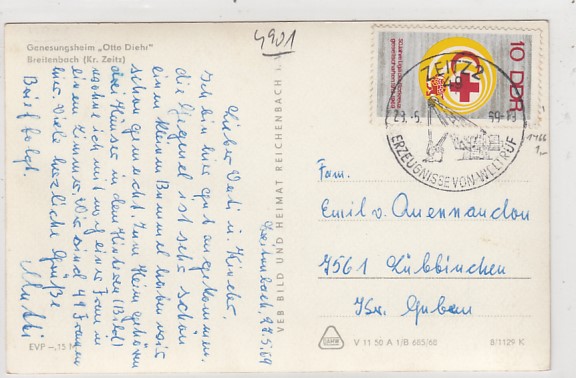 Genesungsheim „Otto Diehr"
Breitenbach (Kr. Zeitz)
4901
Breitenbach, 27.5.69
Liebe Vesti u. Kinder,
Ich bin hier gut angekommen.
die Gegend ist sehr schön
einen kleinen Bummel haben wir
schon gemacht. Zum Heim gehören
drei Häuser in dem Hinteren (Bild)
wohne ich mit noch einer Frau in
ein Zimmer. Wir sind 49 Frauen
hier. Viele herzliche Grüße
Mutti
Brief folgt.
EVP –,15 M
VEB BILD UND HEIMAT REICHENBACH i. V.
10 DDR
ZEITZ 2
ERZEUGNISSE VON WELTRUF
1466
1,–
Fam.
Emil v. Quennaudon
7561 Lübbinchen
Kr. Guben
V 11 50 A 1/B 685/68
8/1129 K